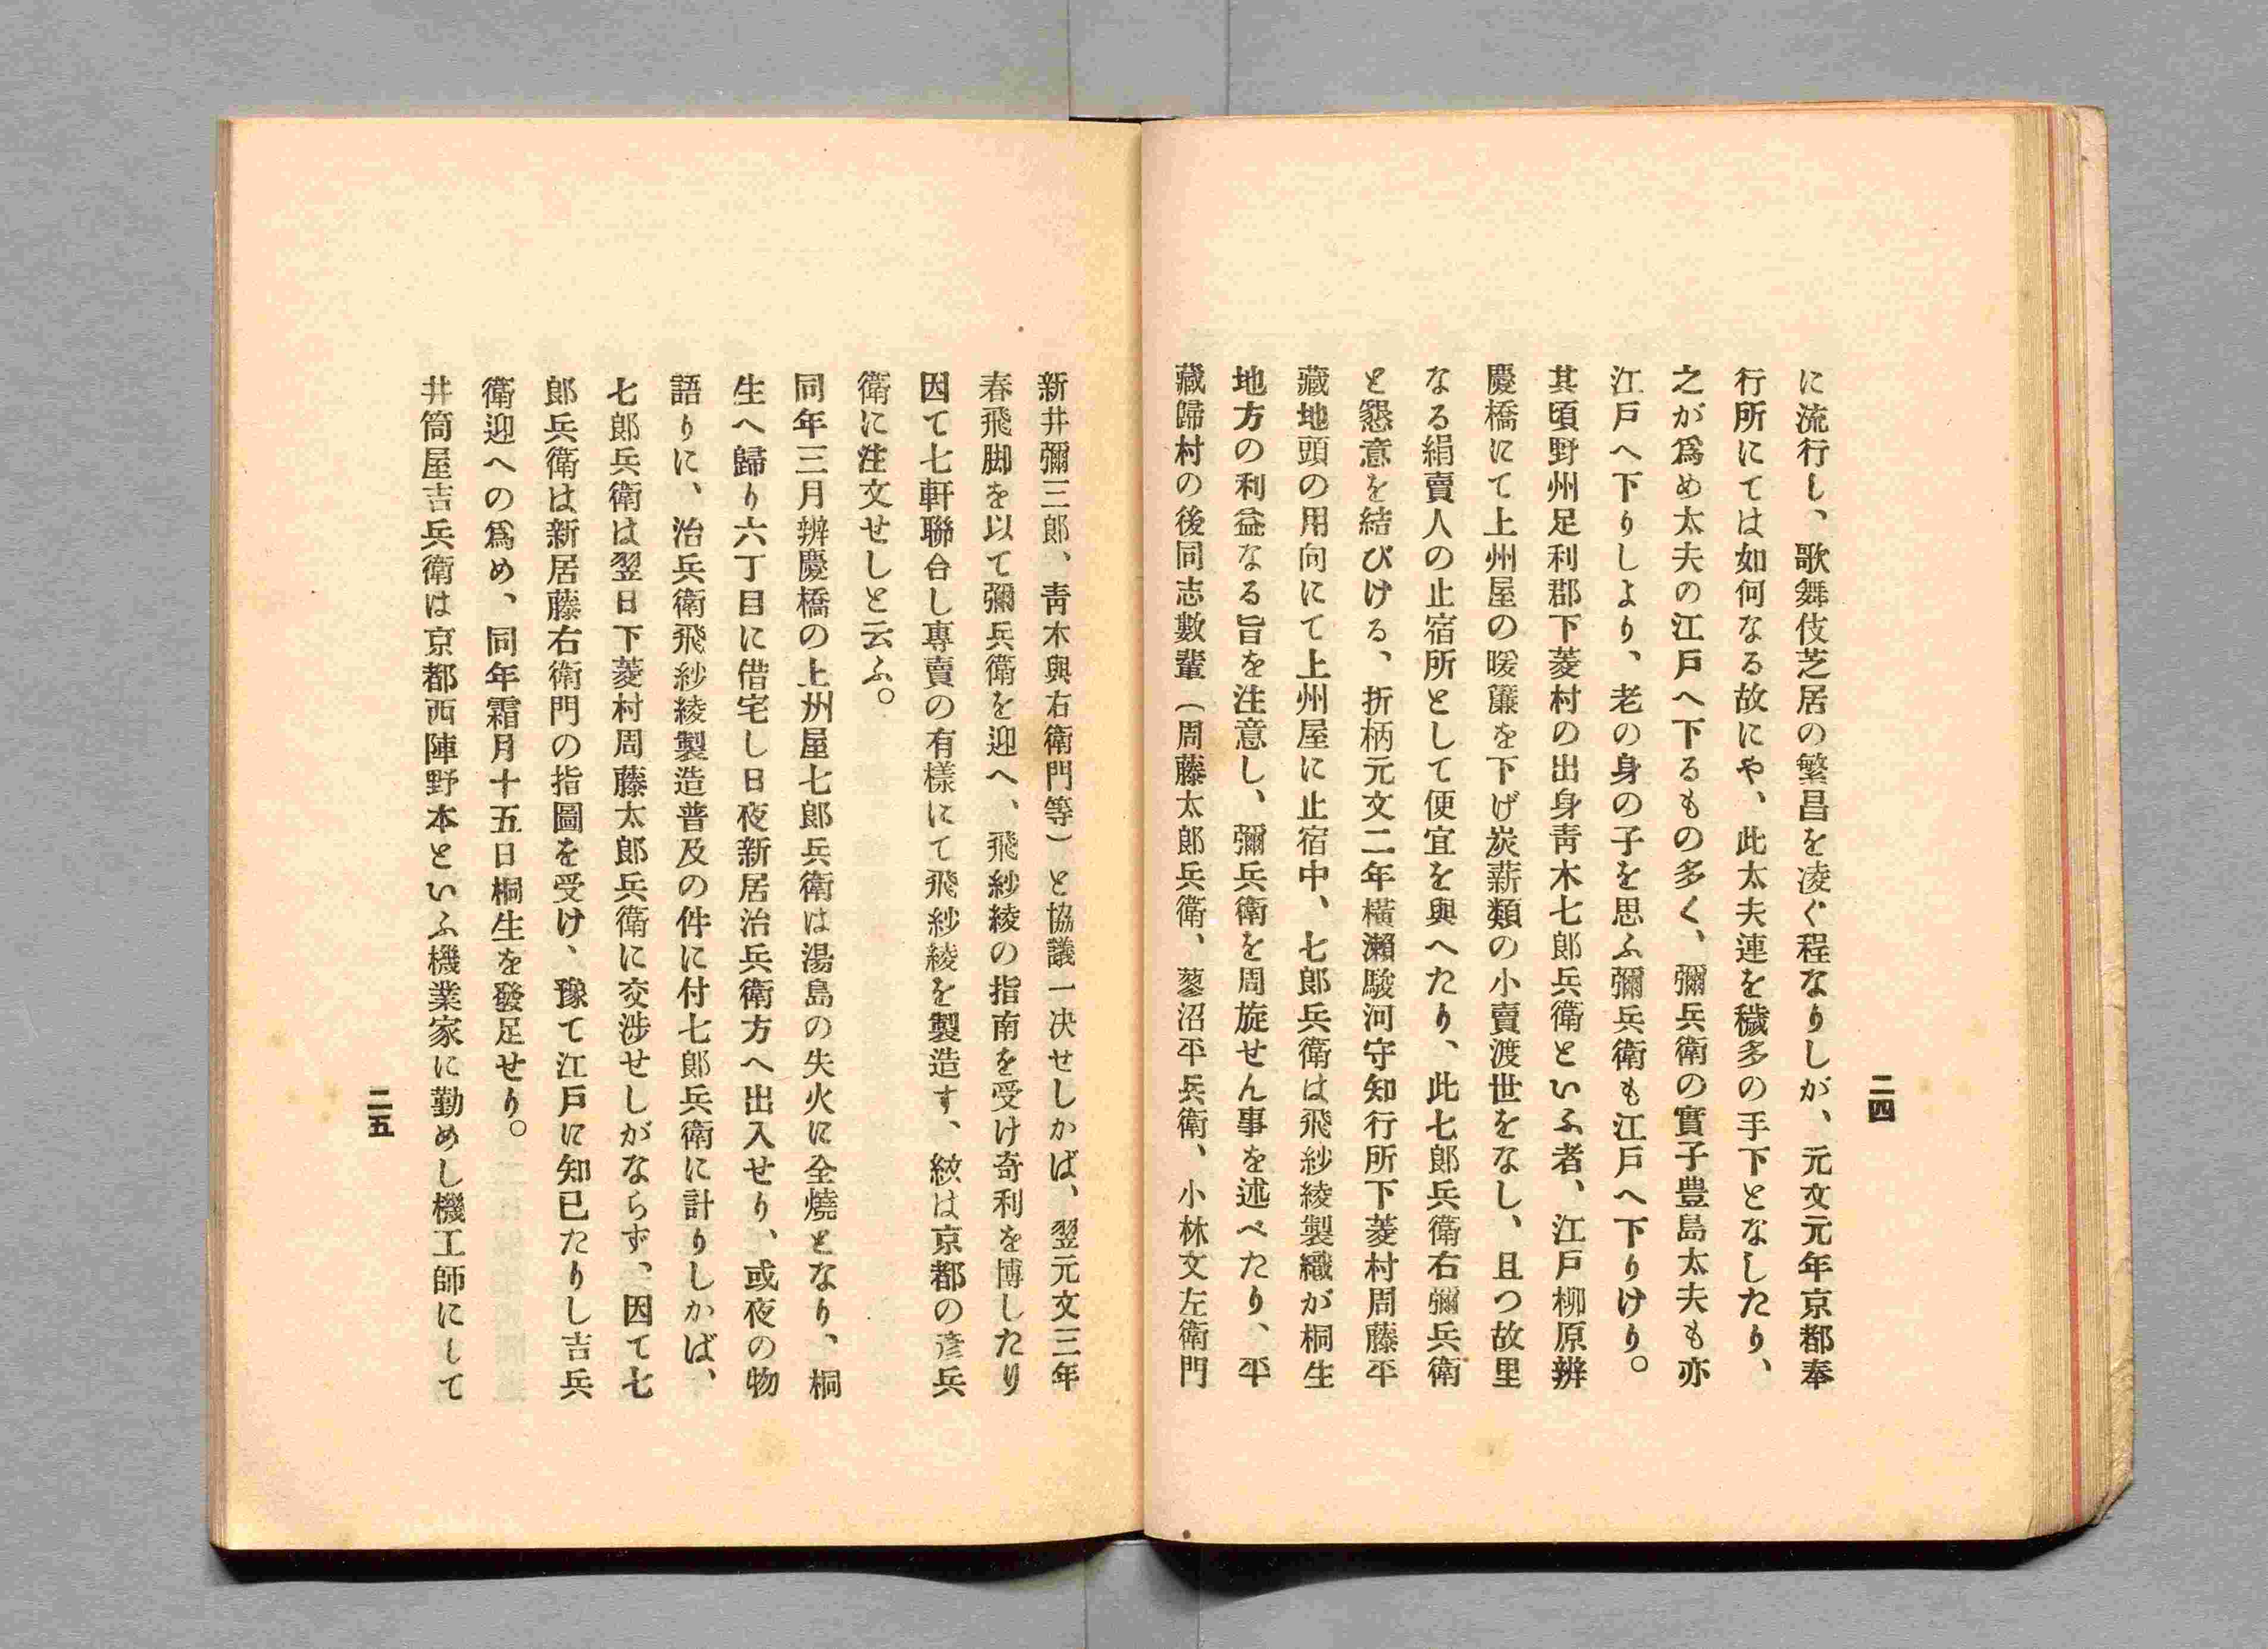 に流行し、歌舞伎芝居の繁昌を凌ぐ程なりしが、元文元年京都奉
行所にては如何なる故にや、此太夫連を穢多の手下となしたり、
之が爲め太夫の江戸へ下るもの多く、彌兵衛の實子豊島太夫も亦
江戸へ下りしより、老の身の子を思ふ彌兵衛も江戸へ下りけり。
其頃野州足利郡下菱村の出身靑木七郎兵衛といふ者、江戸柳原辨
慶橋にて上州屋の暖簾を下げ炭薪類の小賣渡世をなし、且つ故里
なる絹賣人の止宿所として便宜を與へたり、此七郎兵衛右彌兵衛
と懇意を結びける、折柄元文二年橫瀨駿河守知行所下菱村周藤平
藏地頭の用向にて上州屋に止宿中、七郎兵衛は飛紗綾製織が桐生
地方の利益なる旨を注意し、彌兵衛を周旋せん事を述べたり、平
藏歸村の後同志數輩(周藤太郎兵衛、蓼沼平兵衛、小林文左衛門
二四
新井彌三郎、靑木與右衛門等)と協議一决せしかば、翌元文三年
春飛脚を以て彌兵衛を迎へ、飛紗綾の指南を受け奇利を博したり
因て七軒聯合し專賣の有樣にて飛紗綾を製造す、紋は京都の彦兵
衛に注文せしと云ふ。
同年三月辨慶橋の上州屋七郎兵衛は湯島の失火に全燒となり、桐
生へ歸り六丁目に借宅し日夜新居治兵衛方へ出入せり、或夜の物
語りに、治兵衛飛紗綾製造普及の件に付七郎兵衛に計りしかば、
七郎兵衛は翌日下菱村周藤太郎兵衛に交渉せしがならず、因て七
郎兵衛は新居藤右衛門の指圖を受け、豫て江戸に知已たりし吉兵
衛迎への爲め、同年霜月十五日桐生を發足せり。
井筒屋吉兵衛は京都西陣野本といふ機業家に勤めし機工師にして
二五